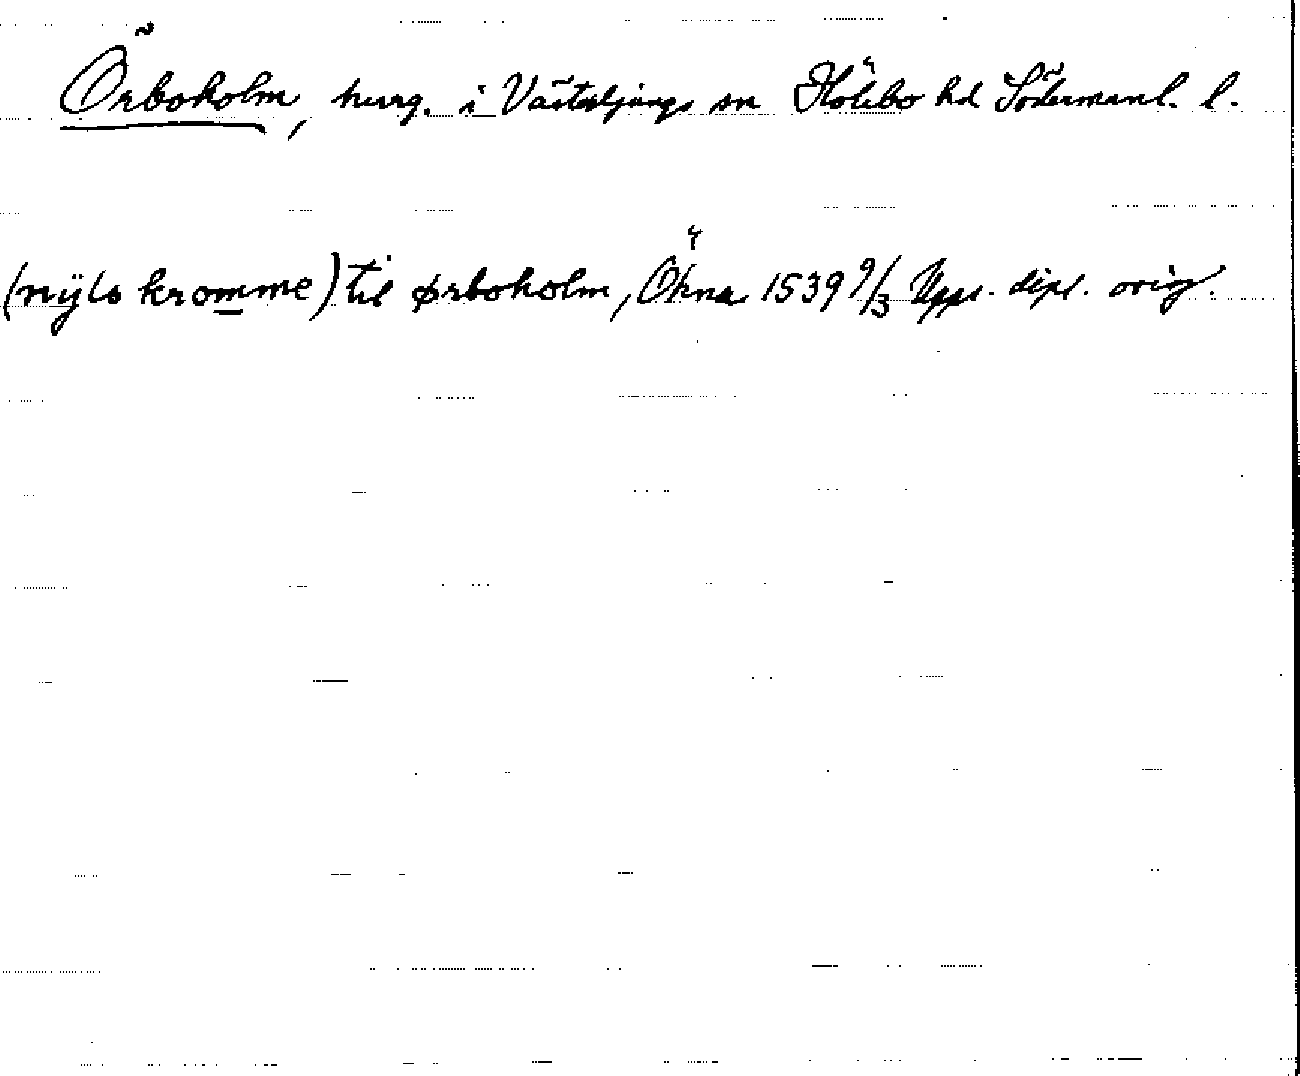 Örboholm, herrg. i Västerljungs sn Hölebo hd Södermanl. l.
(nÿls kromme) til ørboholm, Ökna 1539 9/3 Upps. dipl. orig.